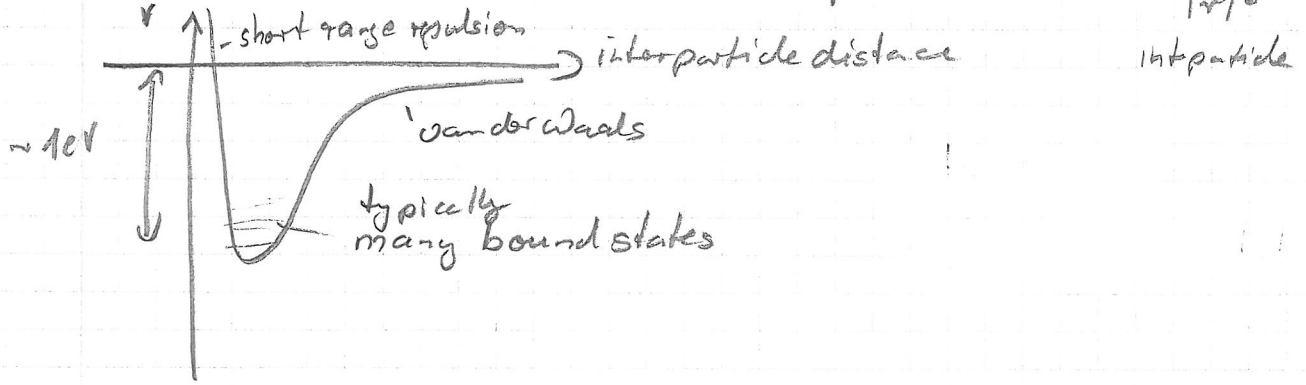 V
short range repulsion
interparticle distance
intparticle
van der Waals
~ 1eV
typically
many bound states